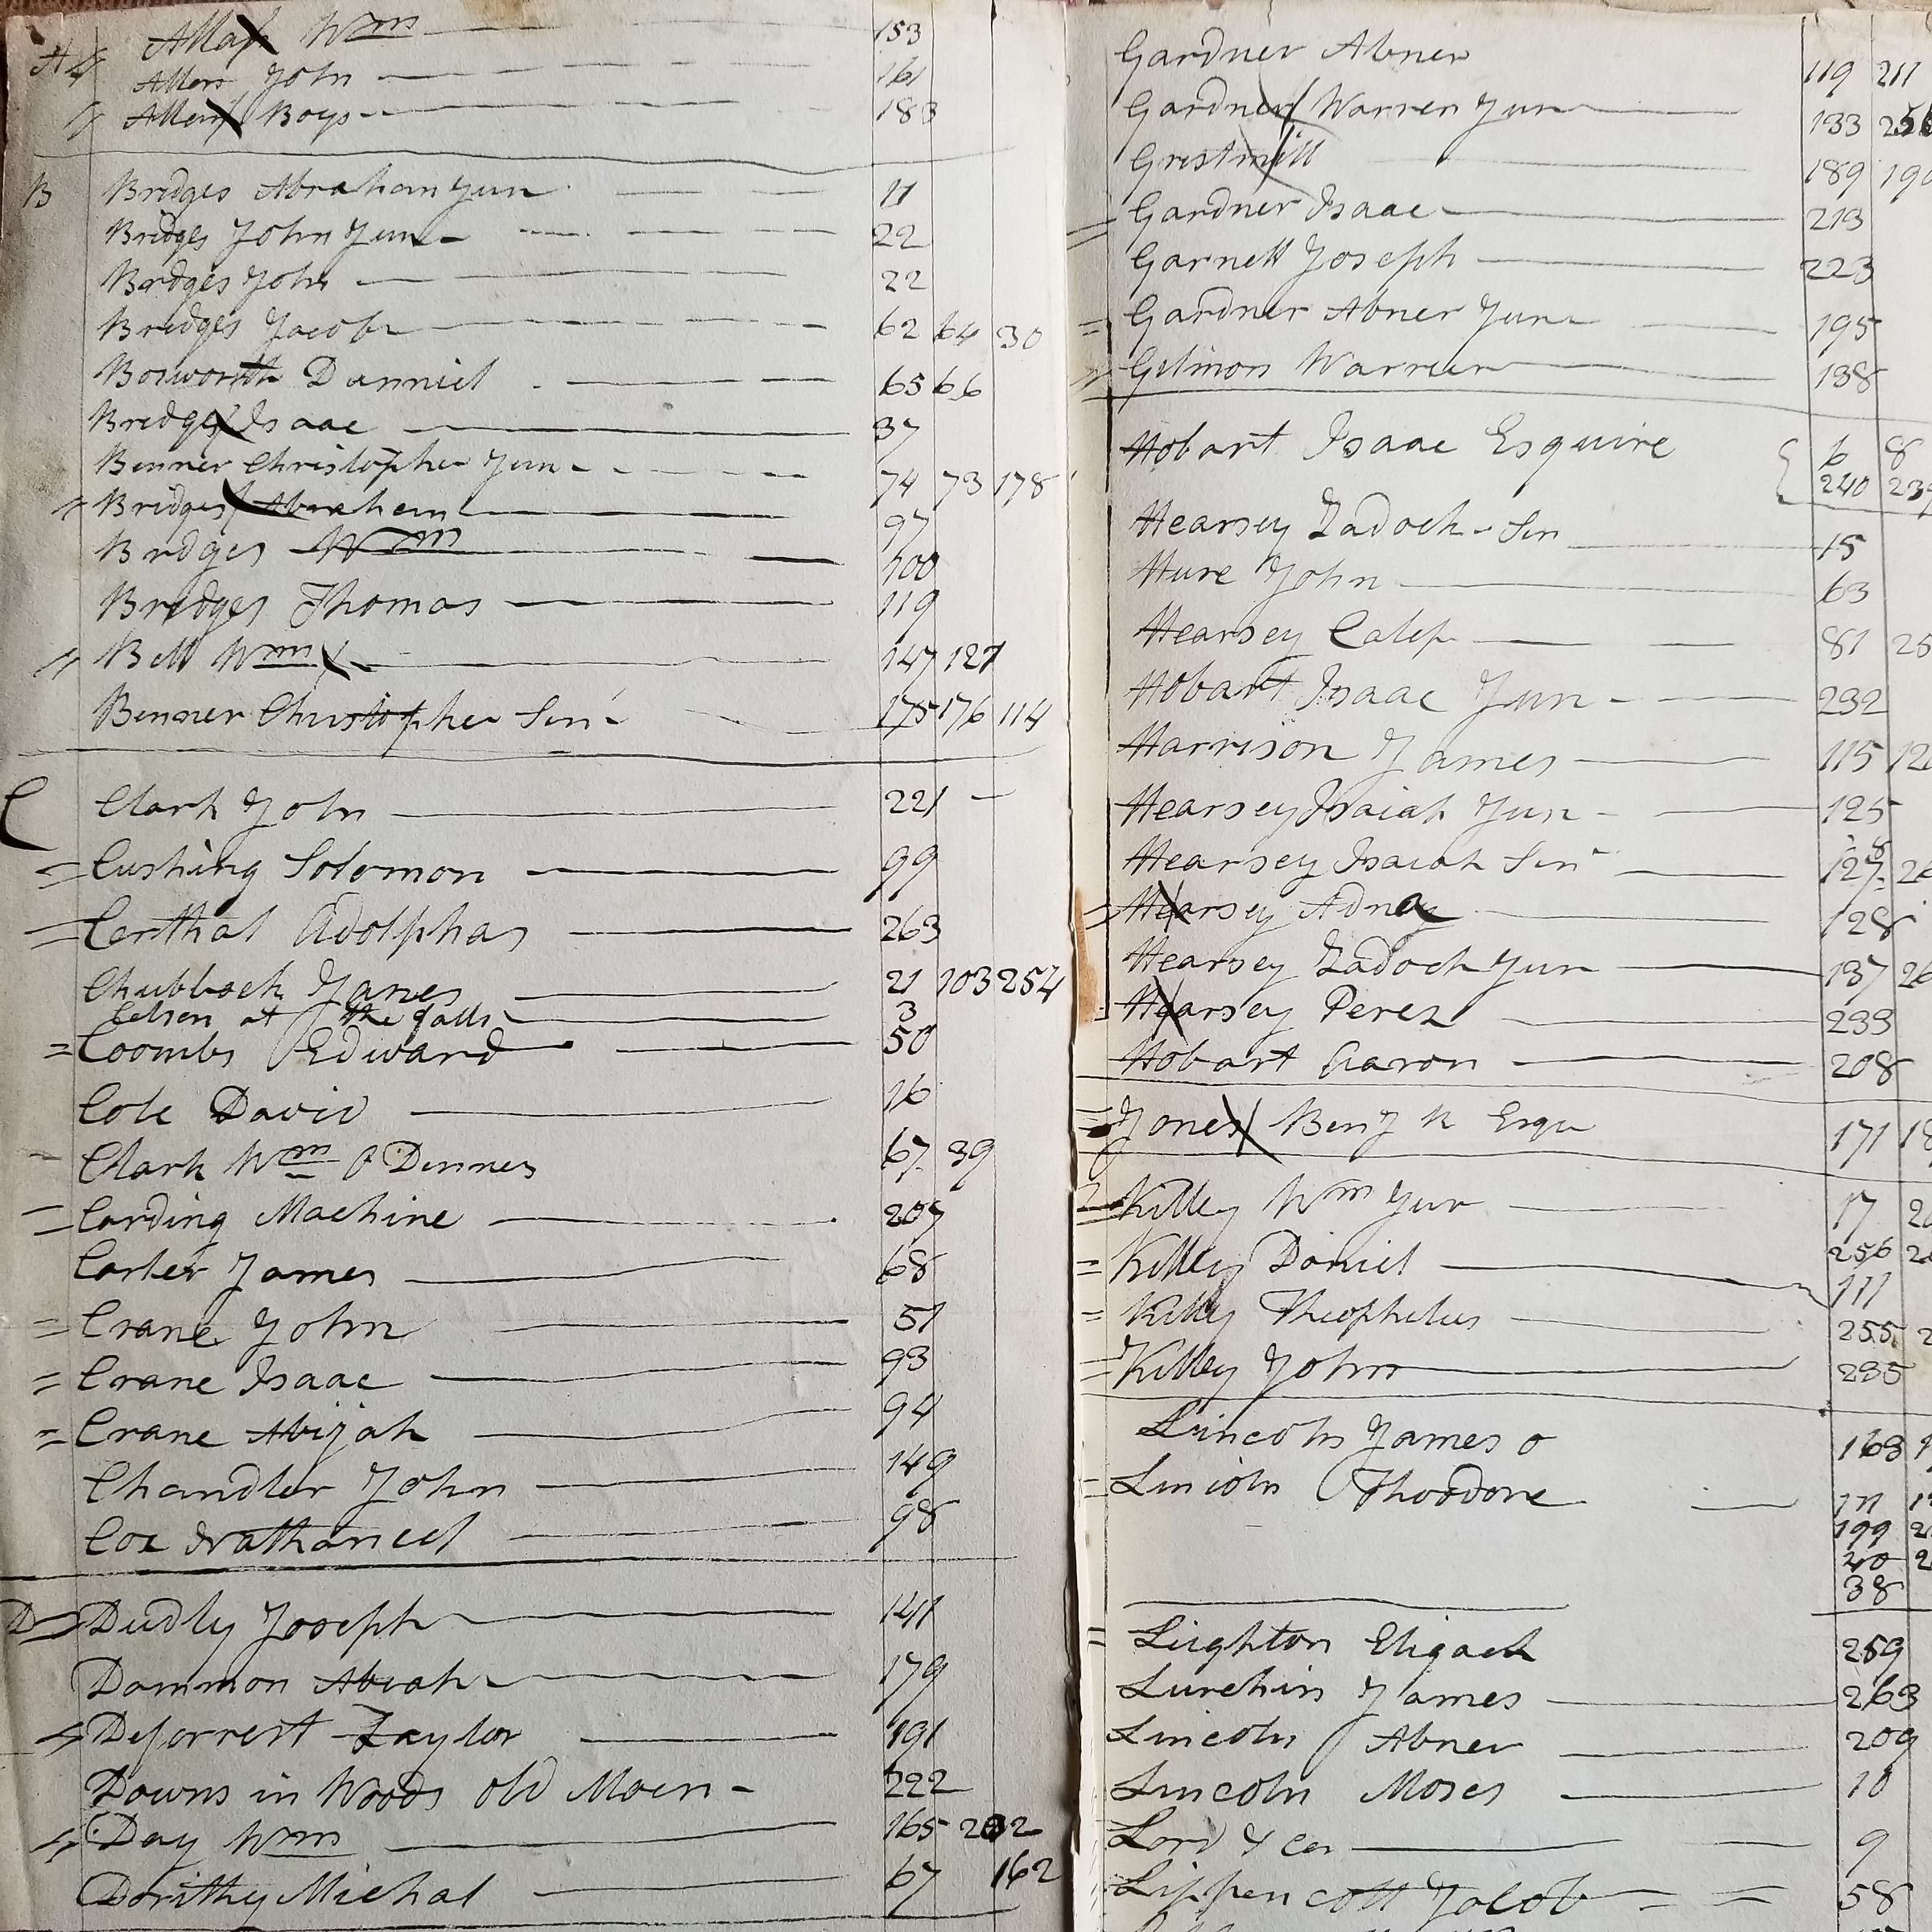 A Allan Wm 153
Allen John 161
Allen Boys 183
B Bridges Abraham Jun 11
Bridges John Jun 22
Bridges John 22
Bridges Jacob 62 64 30
Bosworth Danniel 65 66
Bridges Isaac 37
Benner Christopher Jun 74 73 178
Bridges Abraham 97
Bridges Wm 100
Bridges Thomas 119
Bell Wm 147 127
Benner Christopher Sen 175 176 114
C Clark John 221
Cushing Solomon 99
Certhal Adolphas 263
Chubbock James 21 103 254
at the falls 3
Coombs Edward 50
Cole David 16
Clark Wm O Dennes 67 39
Carding Machine 207
Carter James 68
Crane John 51
Crane Isaac 93
Crane Abijah 94
Chandler John 149
Cox Nathaniel 98
D Dudly Joseph 141
Dammon Abiah 179
Deforrest Taylor 191
Downs in Woods old Maen 222
Day Wm 165 202
Dorithy Michal 67 162
Gardner Abner 119 211
Gardner Warren Jun 133 256
Gristmill 189 190
Gardner Isaac 213
Garnett Joseph 223
Gardner Abner Jun 195
Gilmon Warren 138
Hobart Isaac Esquire 6 8
240 239
Hearsey Zadock Sen 15
Hure John 63
Hearsey Calep 81 25
Hobart Isaac Jun 232
Harrison James 115 12
Hearsey Isaiah Jun 125
Hearsey Isaiah Sen 127 26
Hearsey Adna 128
Hearsey Zadock Jun 137 26
Hearsey Perez 233
Hobart Aaron 208
Jones Benj R Esqu 171 18
Killey Wm Jun 17 2
Killey Daniel 256 2
111
Killey Theophelus 255 2
Killey John 235
Lincoln James O 163 1
Lincoln Theodore 171 1
199 2
40 2
38
Lieghton Eligach 259
Lurchin James 263
Lincoln Abner 209
Lincoln Moses 10
Lord & Co 9
Lippencott Jacob 58